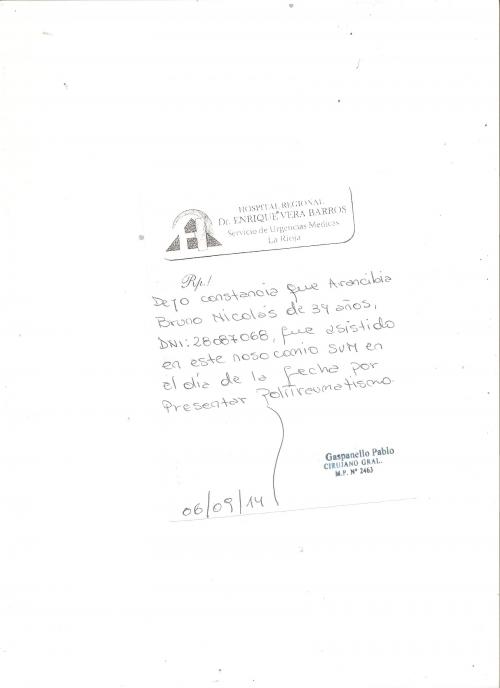 HOSPITAL REGIONAL
Dr. ENRIQUE VERA BARROS
Servicio de Urgencias Medicas
La Rioja
Rp./
Dejo constancia que Arancibia
Bruno Nicolás de 34 años,
DNI: 28087068, fue asistido
en este nosocomio SUM en
el día de la fecha por
Presentar Politraumatismo.
Gaspanello Pablo
CIRUJANO GRAL.
M.P. Nº 2463
06/09/14